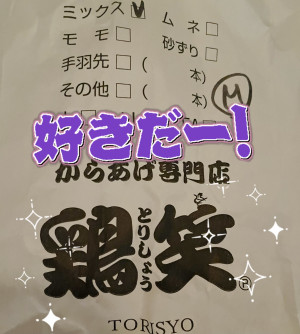 ミックス☑ ムネ□
モモ□ 砂ずり□
手羽先□( 本)
その他□( 本) M
好きだー!
からあげ専門店
とりしょう
鶏笑
TORISYO